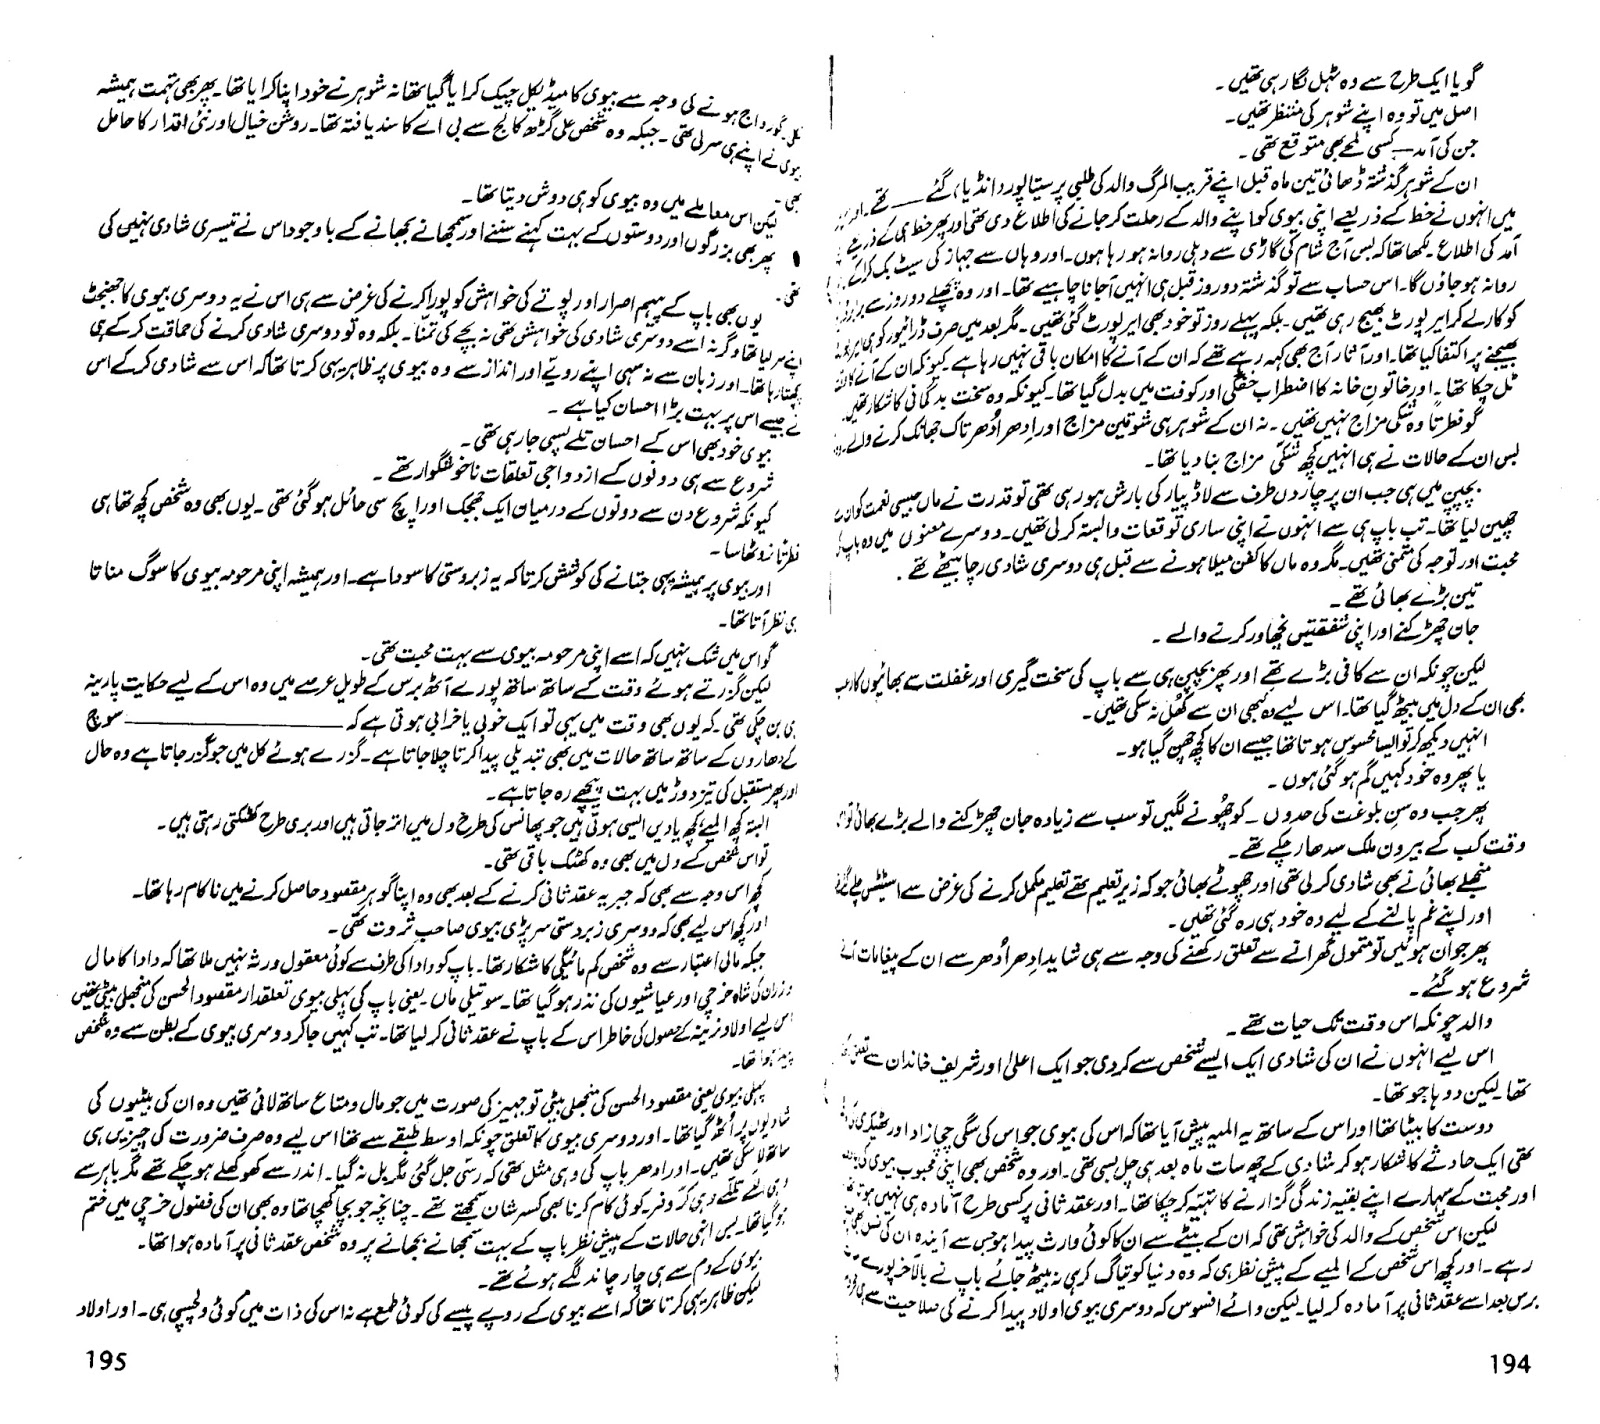 گویا ایک طرح سے وہ ٹہل لگا رہی تھیں۔
اصل میں تو وہ اپنے شوہر کی منتظر تھیں۔
جن کی آمد — کسی لمحے بھی متوقع تھی۔
ان کے شوہر گذشتہ ڈھائی تین ماہ قبل اپنے قریب المرگ والد کی طلبی پر سیتاپور (انڈیا) گئے —— تھے۔
میں انہوں نے خط کے ذریعے اپنی بیوی کو اپنے والد کے رحلت کر جانے کی اطلاع دی تھی اور پھر خط ہی کے ذریعے
آمد کی اطلاع۔ لکھا تھا کہ بس آج شام کی گاڑی سے دہلی روانہ ہو رہا ہوں۔ اور وہاں سے جہاز کی سیٹ بک کرا کے
روانہ ہو جاؤں گا۔ اس حساب سے تو گذشتہ دو روز قبل ہی انہیں آ جانا چاہیے تھا۔ اور وہ پچھلے دو روز سے برابر
کو کار لے کر ایر پورٹ بھیج رہی تھیں۔ بلکہ پہلے روز تو خود بھی ایر پورٹ گئی تھیں۔ مگر بعد میں صرف ڈرائیور کو ہی
بھیجنے پر اکتفا کیا تھا۔ اور آثار آج بھی کہہ رہے تھے کہ ان کے آنے کا امکان باقی نہیں رہا ہے کیونکہ ان کے آنے کا
ٹل چکا تھا۔ اور خاتونِ خانہ کا اضطراب خفگی اور کوفت میں بدل گیا تھا۔ کیونکہ وہ سخت بدگمانی کا شکار تھیں
گو فطرتاً وہ شکی مزاج نہیں تھیں۔ نہ ان کے شوہر ہی شوقین مزاج اور ادھر اُدھر تاک جھانک کرنے والے
بس ان کے حالات نے ہی انہیں کچھ شکی مزاج بنا دیا تھا۔
بچپن میں ہی جب ان پر چاروں طرف سے لاڈ پیار کی بارش ہو رہی تھی تو قدرت نے ماں جیسی نعمت کو ان سے
چھین لیا تھا۔ تب باپ ہی سے انہوں نے اپنی ساری توقعات وابستہ کر لی تھیں۔ دوسرے معنوں میں وہ باپ کی
محبت اور توجہ کی متمنی تھیں۔ مگر وہ ماں کا کفن میلا ہونے سے قبل ہی دوسری شادی رچا بیٹھے تھے۔
تین بڑے بھائی تھے۔
جان چھڑکنے اور اپنی شفقتیں نچھاور کرنے والے۔
لیکن چونکہ ان سے کافی بڑے تھے اور پھر بچپن ہی سے باپ کی سخت گیری اور غفلت سے بھائیوں کا رعب
بھی ان کے دل میں بیٹھ گیا تھا۔ اس لیے وہ کبھی ان سے کھل نہ سکی تھیں۔
انہیں دیکھ کر تو ایسا محسوس ہوتا تھا جیسے ان کا کچھ چھن گیا ہو۔
یا پھر وہ خود کہیں گم ہو گئی ہوں۔
پھر جب وہ سنِ بلوغت کی حدوں۔ کو چھونے لگیں تو سب سے زیادہ جان چھڑکنے والے بڑے بھائی تو
وقت کب کے بیرون ملک سدھار چکے تھے۔
منجھلے بھائی نے بھی شادی کر لی تھی اور چھوٹے بھائی جو کہ زیرِ تعلیم تھے تعلیم مکمل کرنے کی غرض سے اسٹیٹس چلے گئے
اور اپنے غم پالنے کے لیے وہ خود ہی رہ گئی تھیں۔
پھر جوان ہوئیں تو متمول گھرانے سے تعلق رکھنے کی وجہ سے ہی شاید ادھر اُدھر سے ان کے پیغامات آنے
شروع ہو گئے۔
والد چونکہ اس وقت تک حیات تھے۔
اس لیے انہوں نے ان کی شادی ایک ایسے شخص سے کر دی جو ایک اعلیٰ اور شریف خاندان سے تعلق
تھا۔ لیکن دوہاجو تھا۔
دوست کا بیٹا تھا اور اس کے ساتھ یہ المیہ پیش آیا تھا کہ اس کی بیوی جو اس کی سگی چچا زاد اور ٹھیکری
تھی ایک حادثے کا شکار ہو کر شادی کے چھ سات ماہ بعد ہی چل بسی تھی۔ اور وہ شخص بھی اپنی محبوب بیوی کی
اور محبت کے سہارے اپنے بقیہ زندگی گزارنے کا تہیّہ کر چکا تھا۔ اور عقدِ ثانی پر کسی طرح آمادہ ہی نہیں ہوتا
لیکن اس شخص کے والد کی خواہش تھی کہ ان کے بیٹے سے ان کا کوئی وارث پیدا ہو جس سے آیندہ ان کی نسل
رہے۔ اور کچھ اس شخص کے المیے کے پیشِ نظر ہی کہ وہ دنیا کو تیاگ کر ہی نہ بیٹھ جائے باپ نے بالآخر پورے
برس بعد اسے عقدِ ثانی پر آمادہ کر لیا۔ لیکن وائے افسوس کہ دوسری بیوی اولاد پیدا کرنے کی صلاحیت سے ہی
194
گو رواج ہونے کی وجہ سے بیوی کا میڈیکل چیک کرایا گیا تھا نہ شوہر نے خود اپنا کرایا تھا۔ پھر بھی تہمت ہمیشہ
بیوی نے اپنے ہی سر لی تھی۔ جبکہ وہ شخص علی گڑھ کالج سے بی اے کا سند یافتہ تھا۔ روشن خیال اور نئی اقدار کا حامل
بھی۔
لیکن اس معاملے میں وہ بیوی کو ہی دوش دیتا تھا۔
پھر بھی بزرگوں اور دوستوں کے بہت کہنے سننے اور سمجھانے بجھانے کے باوجود اس نے تیسری شادی نہیں کی
تھی۔
یوں بھی باپ کے پیہم اصرار اور پوتے کی خواہش کو پورا کرنے کی غرض سے ہی اس نے یہ دوسری بیوی کا جھنجٹ
اپنے سر لیا تھا وگرنہ اسے دوسری شادی کی خواہش تھی نہ بچے کی تمنّا۔ بلکہ وہ تو دوسری شادی کرنے کی حماقت کر کے ہی
پچھتا رہا تھا۔ اور زبان سے نہ سہی اپنے رویّے اور انداز سے وہ بیوی پر ظاہر یہی کرتا تھا کہ اس سے شادی کر کے اس
نے جیسے اس پر بہت بڑا احسان کیا ہے۔
بیوی خود بھی اس کے احسان تلے پسی جا رہی تھی۔
شروع سے ہی دونوں کے ازدواجی تعلقات ناخوشگوار تھے۔
کیونکہ شروع دن سے دونوں کے درمیان ایک جھجک اور اپچ سی حائل ہو گئی تھی۔ یوں بھی وہ شخص کچھ تھا ہی
فطرتاً روٹھا سا۔
اور بیوی پر ہمیشہ یہی جتانے کی کوشش کرتا کہ یہ زبردستی کا سودا ہے۔ اور ہمیشہ اپنی مرحومہ بیوی کا سوگ مناتا
ہی نظر آتا تھا۔
گو اس میں شک نہیں کہ اسے اپنی مرحومہ بیوی سے بہت محبت تھی۔
لیکن گزرتے ہوئے وقت کے ساتھ ساتھ پورے آٹھ برس کے طویل عرصے میں وہ اس کے لیے حکایتِ پارینہ
ہی بن چکی تھی۔ کہ یوں بھی وقت میں یہی تو ایک خوبی یا خرابی ہوتی ہے کہ —————— سوچ
کے دھاروں کے ساتھ ساتھ حالات میں بھی تبدیلی پیدا کرتا چلا جاتا ہے۔ گزرے ہوئے کل میں جو گزر جاتا ہے وہ حال
اور پھر مستقبل کی تیز دوڑ میں بہت پیچھے رہ جاتا ہے۔
البتہ کچھ المیے کچھ یادیں ایسی ہوتی ہیں جو پھانس کی طرح دل میں اتر جاتی ہیں اور بری طرح کھٹکتی رہتی ہیں۔
تو اس شخص کے دل میں بھی وہ کھٹک باقی تھی۔
کچھ اس وجہ سے بھی کہ جبریہ عقدِ ثانی کرنے کے بعد بھی وہ اپنا گوہرِ مقصود حاصل کرنے میں ناکام رہا تھا۔
اور کچھ اس لیے بھی کہ دوسری زبردستی سر پڑی بیوی صاحبِ ثروت تھی۔
جبکہ مالی اعتبار سے وہ شخص کم مائیگی کا شکار تھا۔ باپ کو دادا کی طرف سے کوئی معقول ورثہ نہیں ملا تھا کہ دادا کا مال
و زر ان کی شاہ خرچی اور عیاشیوں کی نذر ہو گیا تھا۔ سوتیلی ماں۔ یعنی باپ کی پہلی بیوی تعلقدار مقصود الحسن کی منجھلی بیٹی تھیں
اس لیے اولادِ نرینہ کے حصول کی خاطر اس کے باپ نے عقدِ ثانی کر لیا تھا۔ تب کہیں جا کر دوسری بیوی کے بطن سے وہ شخص
پیدا ہوا تھا۔
پہلی بیوی یعنی مقصود الحسن کی منجھلی بیٹی تو جہیز کی صورت میں جو مال و متاع ساتھ لائی تھیں وہ ان کی بیٹیوں کی
شادیوں پر اُٹھ گیا تھا۔ اور دوسری بیوی کا تعلق چونکہ اوسط طبقے سے تھا اس لیے وہ صرف ضرورت کی چیزیں ہی
ساتھ لا سکی تھیں۔ اور ادھر باپ کی وہی مثل تھی کہ رسّی جل گئی مگر بل نہ گیا۔ اندر سے کھوکھلے ہو چکے تھے مگر باہر سے
وہی کرّ و فر۔ کوئی کام کرنا بھی کسرِ شان سمجھتے تھے۔ چنانچہ جو بچا کھچا تھا وہ بھی ان کی فضول خرچی میں ختم
ہو گیا تھا۔ بس انہی حالات کے پیشِ نظر باپ کے بہت سمجھانے بجھانے پر وہ شخص عقدِ ثانی پر آمادہ ہوا تھا۔
بیوی کے دم سے ہی چار چاند لگے ہوئے تھے۔
لیکن ظاہر یہی کرتا تھا کہ اسے بیوی کے روپے پیسے کی کوئی طمع ہے نہ اس کی ذات میں کوئی دلچسپی ہی۔ اور اولاد
195